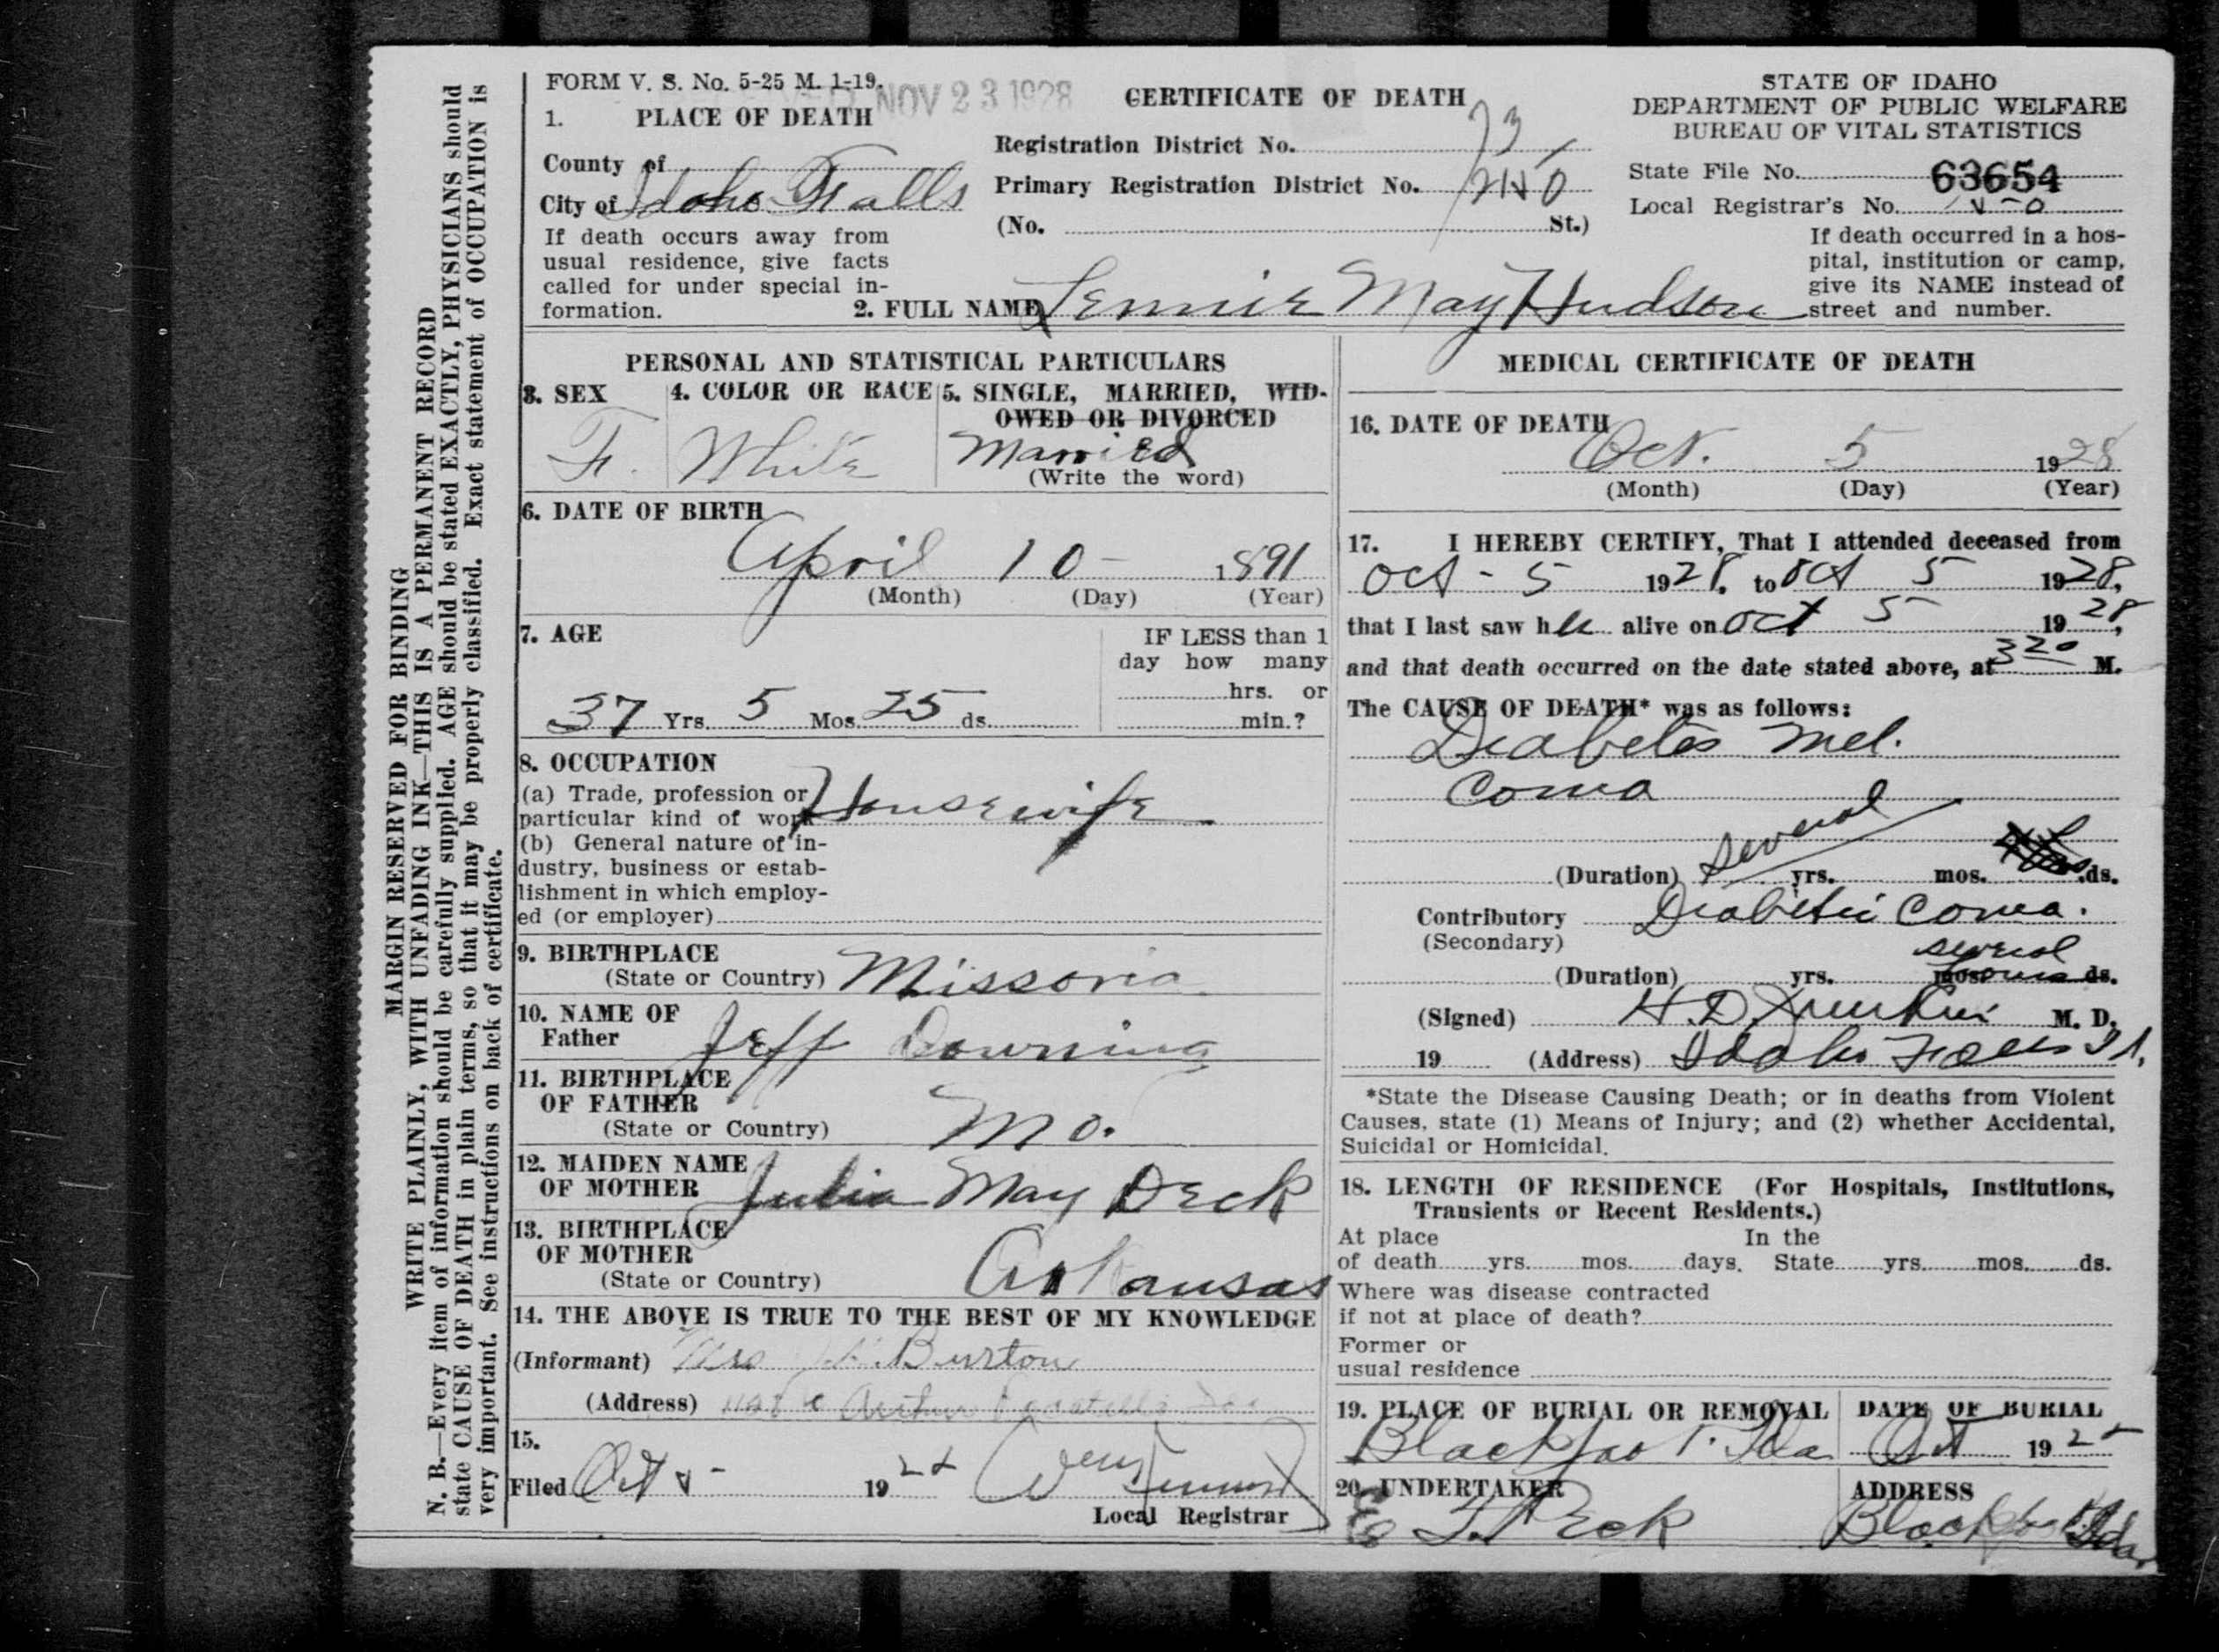 MARGIN RESERVED FOR BINDING
WRITE PLAINLY, WITH UNFADING INK—THIS IS A PERMANENT RECORD
N. B.—Every item of information should be carefully supplied. AGE should be stated EXACTLY, PHYSICIANS should
state CAUSE OF DEATH in plain terms, so that it may be properly classified. Exact statement of OCCUPATION is
very important. See instructions on back of certificate.
FORM V. S. No. 5-25 M. 1-19.
NOV 23 1928
CERTIFICATE OF DEATH
STATE OF IDAHO
DEPARTMENT OF PUBLIC WELFARE
BUREAU OF VITAL STATISTICS
1. PLACE OF DEATH
County of
City of Idaho Falls
If death occurs away from
usual residence, give facts
called for under special in-
formation.
Registration District No. 73
Primary Registration District No.
(No. St.)
State File No. 63654
Local Registrar's No.
If death occurred in a hos-
pital, institution or camp,
give its NAME instead of
street and number.
2. FULL NAME Lennie May Hudson
PERSONAL AND STATISTICAL PARTICULARS
3. SEX F.
4. COLOR OR RACE White
5. SINGLE, MARRIED, WID-
OWED OR DIVORCED
Married
(Write the word)
6. DATE OF BIRTH
April 10 - 1891
(Month) (Day) (Year)
7. AGE
37 Yrs. 5 Mos. 25 ds.
IF LESS than 1
day how many
hrs. or
min.?
8. OCCUPATION
(a) Trade, profession or
particular kind of work Housewife
(b) General nature of in-
dustry, business or estab-
lishment in which employ-
ed (or employer)
9. BIRTHPLACE
(State or Country) Missoria
10. NAME OF
Father Jeff Downing
11. BIRTHPLACE
OF FATHER
(State or Country) Mo.
12. MAIDEN NAME
OF MOTHER Julia May Deck
13. BIRTHPLACE
OF MOTHER
(State or Country) Arkansas
14. THE ABOVE IS TRUE TO THE BEST OF MY KNOWLEDGE
(Informant) Mrs Burton
(Address)
15.
Filed Oct 19
Local Registrar
MEDICAL CERTIFICATE OF DEATH
16. DATE OF DEATH
Oct. 5 1928
(Month) (Day) (Year)
17. I HEREBY CERTIFY, That I attended deceased from
Oct - 5 1928, to Oct 5 1928,
that I last saw her alive on Oct 5 1928,
and that death occurred on the date stated above, at 320 M.
The CAUSE OF DEATH* was as follows:
Diabetes Mel.
Coma
(Duration) several yrs. mos. ds.
Contributory Diabetic Coma.
(Secondary)
several
(Duration) yrs. mos. ds.
(Signed) H. D. M. D.
19 (Address) Idaho Falls Id.
*State the Disease Causing Death; or in deaths from Violent
Causes, state (1) Means of Injury; and (2) whether Accidental,
Suicidal or Homicidal.
18. LENGTH OF RESIDENCE (For Hospitals, Institutions,
Transients or Recent Residents.)
At place In the
of death yrs. mos. days. State yrs. mos. ds.
Where was disease contracted
if not at place of death?
Former or
usual residence
19. PLACE OF BURIAL OR REMOVAL
Blackfoot. Ida
DATE OF BURIAL
Oct 192
20. UNDERTAKER
Peck
ADDRESS
Blackfoot Ida.